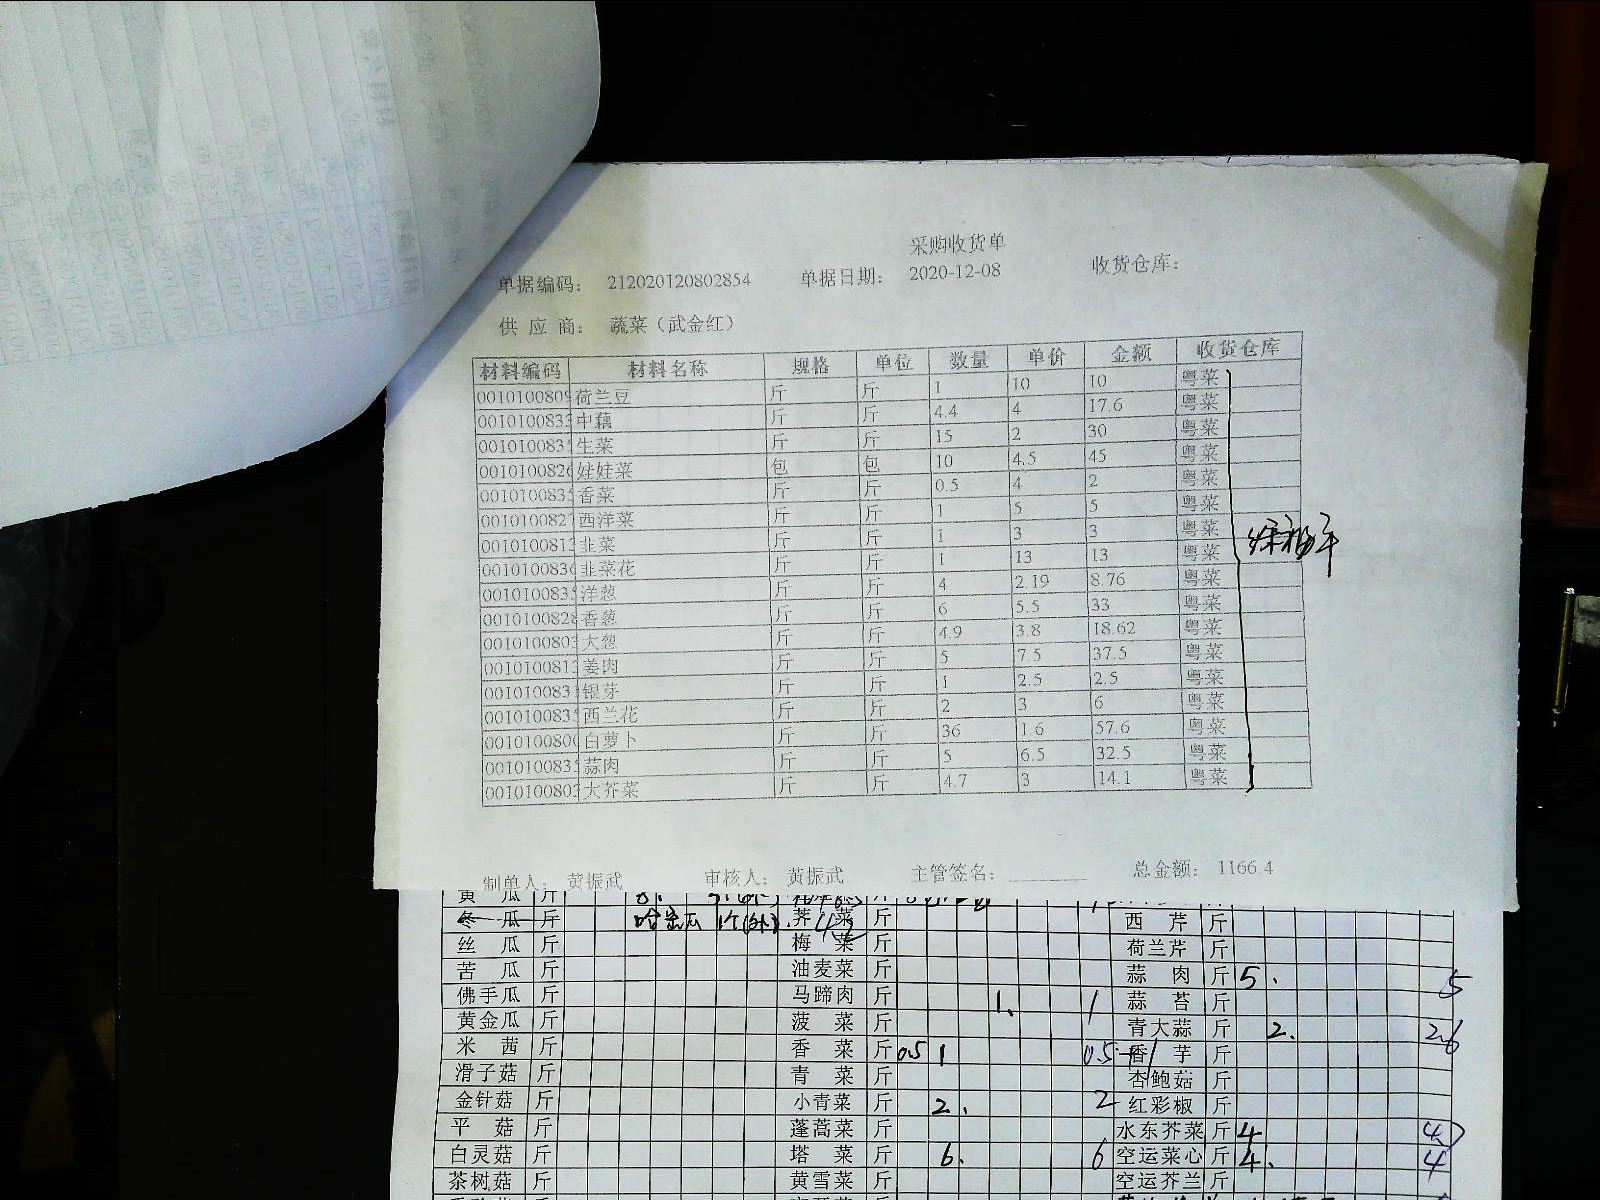 采购收货单
单据编码： 212020120802854 单据日期： 2020-12-08 收货仓库：
供 应 商： 蔬菜（武金红）
材料编码 材料名称 规格 单位 数量 单价 金额 收货仓库
0010100809 荷兰豆 斤 斤 1 10 10 粤菜
001010083 中藕 斤 斤 4.4 4 17.6 粤菜
001010083 生菜 斤 斤 15 2 30 粤菜
001010082 娃娃菜 包 包 10 4.5 45 粤菜
001010083 香菜 斤 斤 0.5 4 2 粤菜
001010082 西洋菜 斤 斤 1 5 5 粤菜
001010081 韭菜 斤 斤 1 3 3 粤菜
001010083 韭菜花 斤 斤 1 13 13 粤菜
001010083 洋葱 斤 斤 4 2.19 8.76 粤菜
001010082 香葱 斤 斤 6 5.5 33 粤菜
001010080 大葱 斤 斤 4.9 3.8 18.62 粤菜
001010081 姜肉 斤 斤 5 7.5 37.5 粤菜
001010083 银芽 斤 斤 1 2.5 2.5 粤菜
001010083 西兰花 斤 斤 2 3 6 粤菜
001010080 白萝卜 斤 斤 36 1.6 57.6 粤菜
001010083 蒜肉 斤 斤 5 6.5 32.5 粤菜
001010080 大芥菜 斤 斤 4.7 3 14.1 粤菜
制单人： 黄振武 审核人： 黄振武 主管签名： 总金额： 1166.4
黄 瓜 斤
冬 瓜 斤 荠 菜 斤 西 芹 斤
丝 瓜 斤 梅 菜 斤 荷兰芹 斤
苦 瓜 斤 油麦菜 斤 蒜 肉 斤 5. 5
佛手瓜 斤 马蹄肉 斤 1. 1 蒜 苔 斤
黄金瓜 斤 菠 菜 斤 青大蒜 斤 2. 2.6
米 茜 斤 香 菜 斤 0.5 1 0.5+1 香 芋 斤
滑子菇 斤 青 菜 斤 杏鲍菇 斤
金针菇 斤 小青菜 斤 2. 2 红彩椒 斤
平 菇 斤 蓬蒿菜 斤 水东芥菜 斤 4
白灵菇 斤 塔 菜 斤 6. 6 空运菜心 斤 4. 4
茶树菇 斤 黄雪菜 斤 空运芥兰 斤